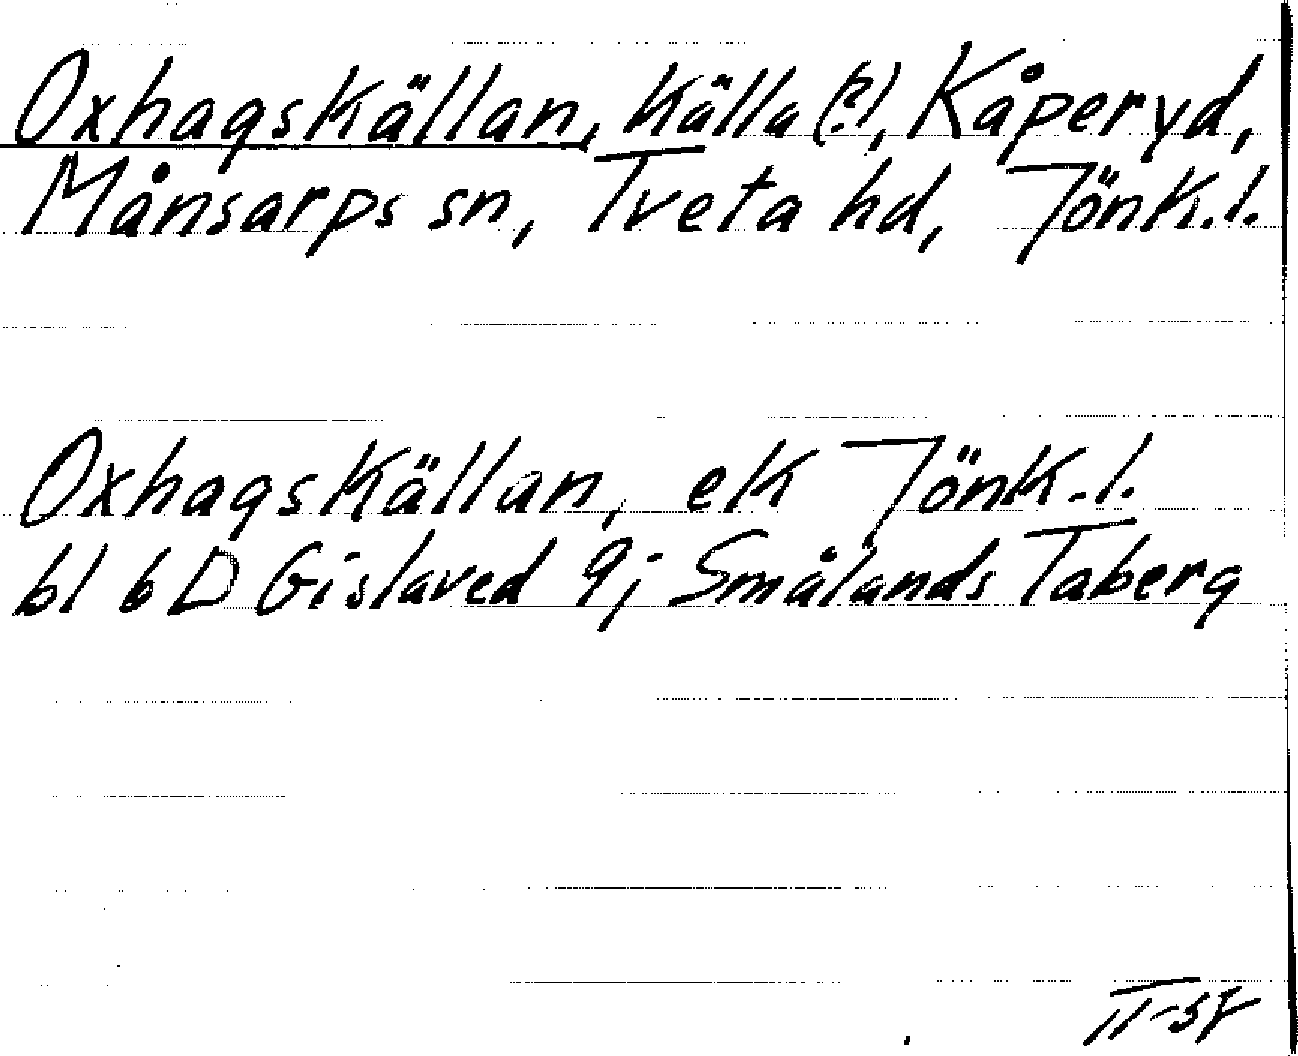 Oxhagskällan, källa (?), Kåperyd,
Månsarps sn, Tveta hd, Jönk.l.
Oxhagskällan, ek Jönk.l.
bl 6 D Gislaved 9j Smålands Taberg